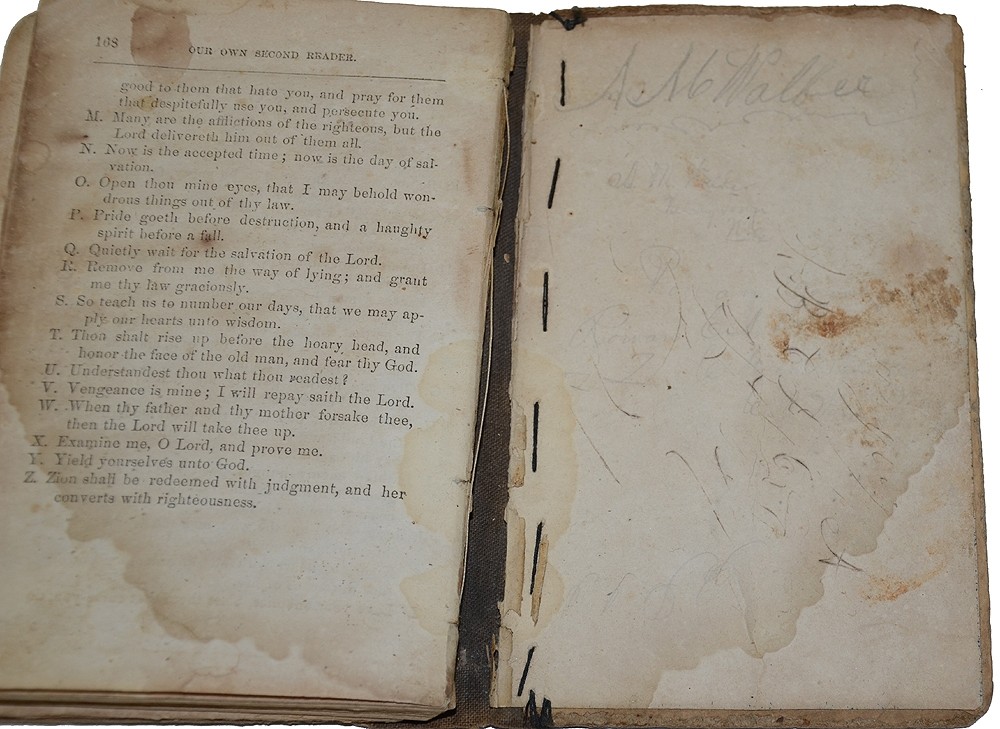 168
OUR OWN SECOND READER.
good to them that hate you, and pray for them
that despitefully use you, and persecute you.
M. Many are the afflictions of the righteous, but the
Lord delivereth him out of them all.
N. Now is the accepted time; now is the day of sal-
vation.
O. Open thou mine eyes, that I may behold won-
drous things out of thy law.
P. Pride goeth before destruction, and a haughty
spirit before a fall.
Q. Quietly wait for the salvation of the Lord.
R. Remove from me the way of lying; and grant
me thy law graciously.
S. So teach us to number our days, that we may ap-
ply our hearts unto wisdom.
T. Thou shalt rise up before the hoary head, and
honor the face of the old man, and fear thy God.
U. Understandest thou what thou readest?
V. Vengeance is mine; I will repay saith the Lord.
W. When thy father and thy mother forsake thee,
then the Lord will take thee up.
X. Examine me, O Lord, and prove me.
Y. Yield yourselves unto God.
Z. Zion shall be redeemed with judgment, and her
converts with righteousness.